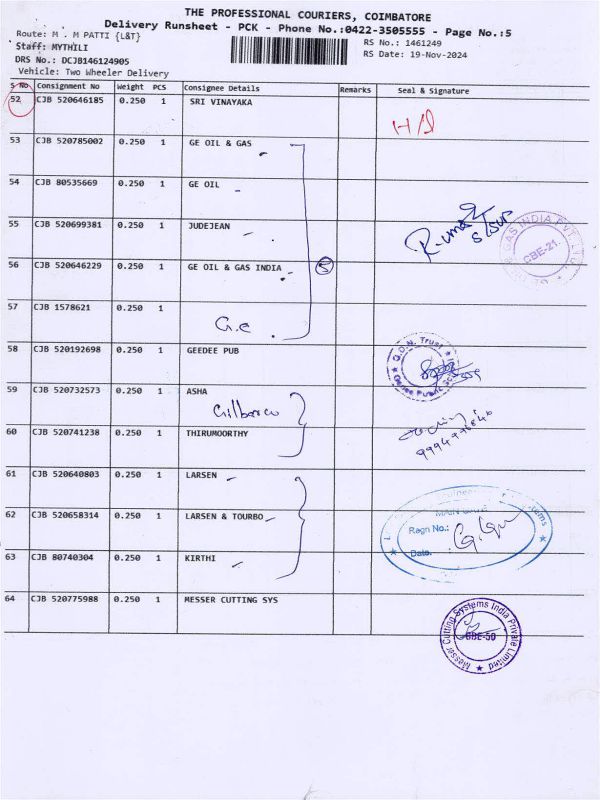 THE PROFESSIONAL COURIERS, COIMBATORE
Delivery Runsheet - PCK - Phone No.:0422-3505555 - Page No.:5
Route: M . M PATTI {L&T}
RS No.: 1461249
Staff: MYTHILI
RS Date: 19-Nov-2024
DRS No.: DCJB146124905
Vehicle: Two Wheeler Delivery
S No Consignment No Weight PCS Consignee Details Remarks Seal & Signature
52 CJB 520646185 0.250 1 SRI VINAYAKA
H/S
53 CJB 520785002 0.250 1 GE OIL & GAS
54 CJB 80535669 0.250 1 GE OIL
55 CJB 520699381 0.250 1 JUDEJEAN
GAS INDIA PVT. LTD
CBE-21.
56 CJB 520646229 0.250 1 GE OIL & GAS INDIA 5
57 CJB 1578621 0.250 1
G.E
58 CJB 520192698 0.250 1 GEEDEE PUB
G.D.N. Trust
Geedee Public
59 CJB 520732573 0.250 1 ASHA
Gilbarco
60 CJB 520741238 0.250 1 THIRUMOORTHY
61 CJB 520640803 0.250 1 LARSEN
62 CJB 520658314 0.250 1 LARSEN & TOURBO
MAIN GATE
Regn No.:
Date.
63 CJB 80740304 0.250 1 KIRTHI
64 CJB 520775988 0.250 1 MESSER CUTTING SYS
Messer Cutting Systems India Private Limited
CBE-50